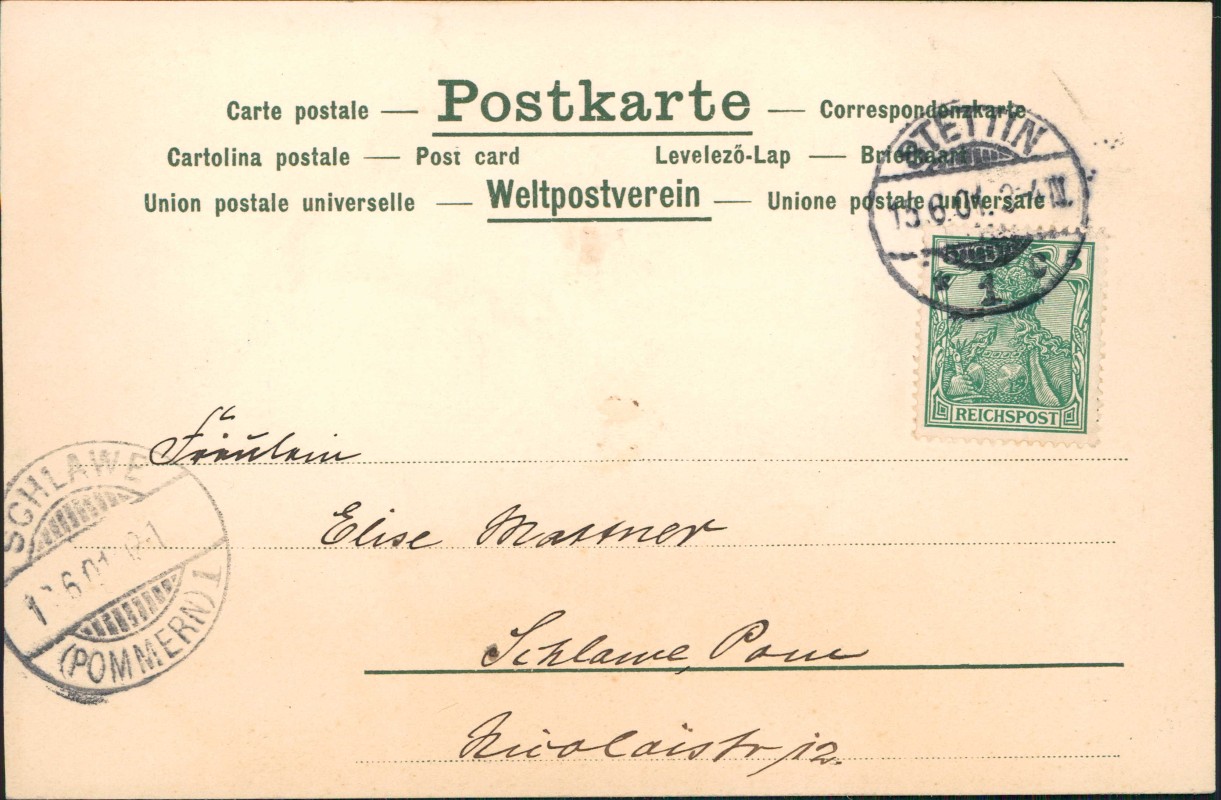 Carte postale — Postkarte — Correspondenzkarte
Cartolina postale — Post card Levelező-Lap — Briefkaart
Union postale universelle — Weltpostverein — Unione postale universale
STETTIN
* 1 c
5
REICHSPOST
Fräulein
Elise Mattner
Schlawe, Pom
Nicolaistr 12.
SCHLAWE
(POMMERN) 1